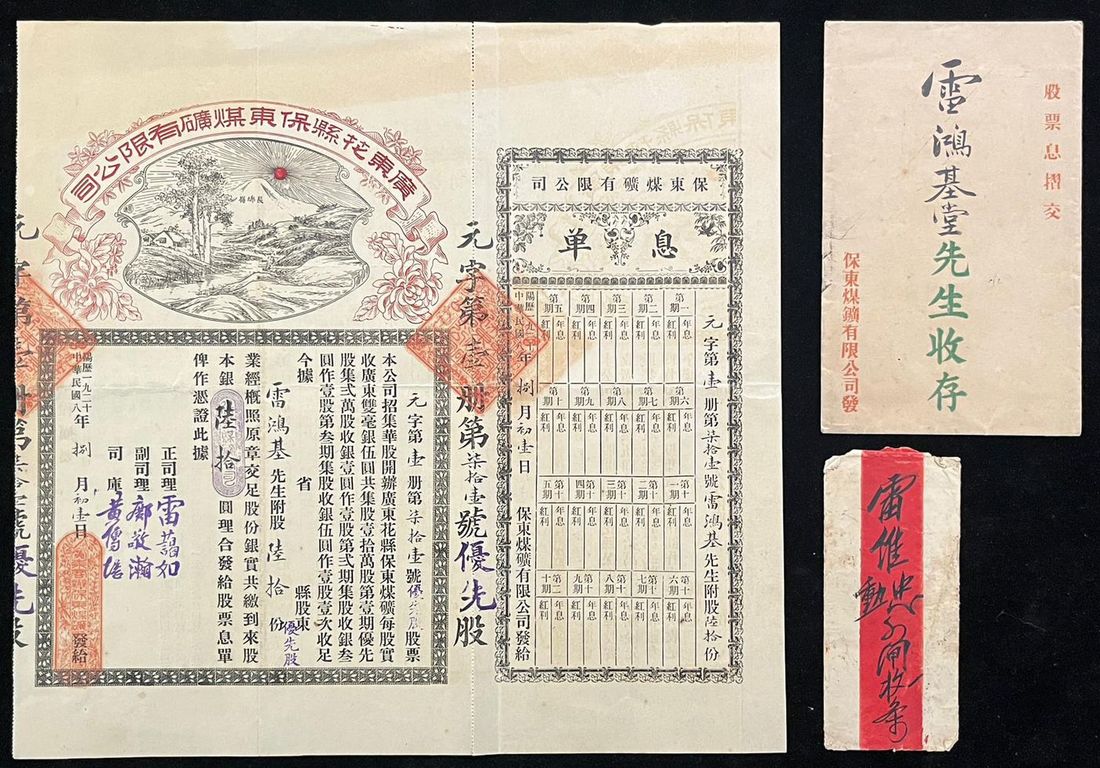 廣東花縣保東煤礦有限公司
元字第壹册第柒拾壹號優先股
元字第壹册第柒拾壹號優先股股票
本公司招集華股開辦廣東花縣保東煤礦每股實
收廣東雙毫銀伍圓共集股壹拾萬股第壹期優先
股集弍萬股收銀壹圓作壹股第弍期集股收銀叁
圓作壹股第叁期集股收銀伍圓作壹股壹次收足
今據 省 縣股東
雷鴻基先生附股陸拾份
優先股
業經概照原章交足股份銀實共繳到來股
本銀陸拾圓理合發給股票息單
俾作憑證此據
正司理
副司理 鄺敬瀚
司庫
陽歷一九二十年
中華民國八年 捌月初壹日 發給
保東煤礦有限公司
息單
元字第壹册第柒拾壹號雷鴻基先生附股陸拾份
第一期 年息 紅利
第二期 年息 紅利
第三期 年息 紅利
第四期 年息 紅利
第五期 年息 紅利
第六期 年息 紅利
第七期 年息 紅利
第八期 年息 紅利
第九期 年息 紅利
第十期 年息 紅利
第十一期 年息 紅利
第十二期 年息 紅利
第十三期 年息 紅利
第十四期 年息 紅利
第十五期 年息 紅利
第十六期 年息 紅利
第十七期 年息 紅利
第十八期 年息 紅利
第十九期 年息 紅利
第二十期 年息 紅利
捌月初壹日
保東煤礦有限公司發給
股票息摺交
雷鴻基堂先生收存
保東煤鑛有限公司發